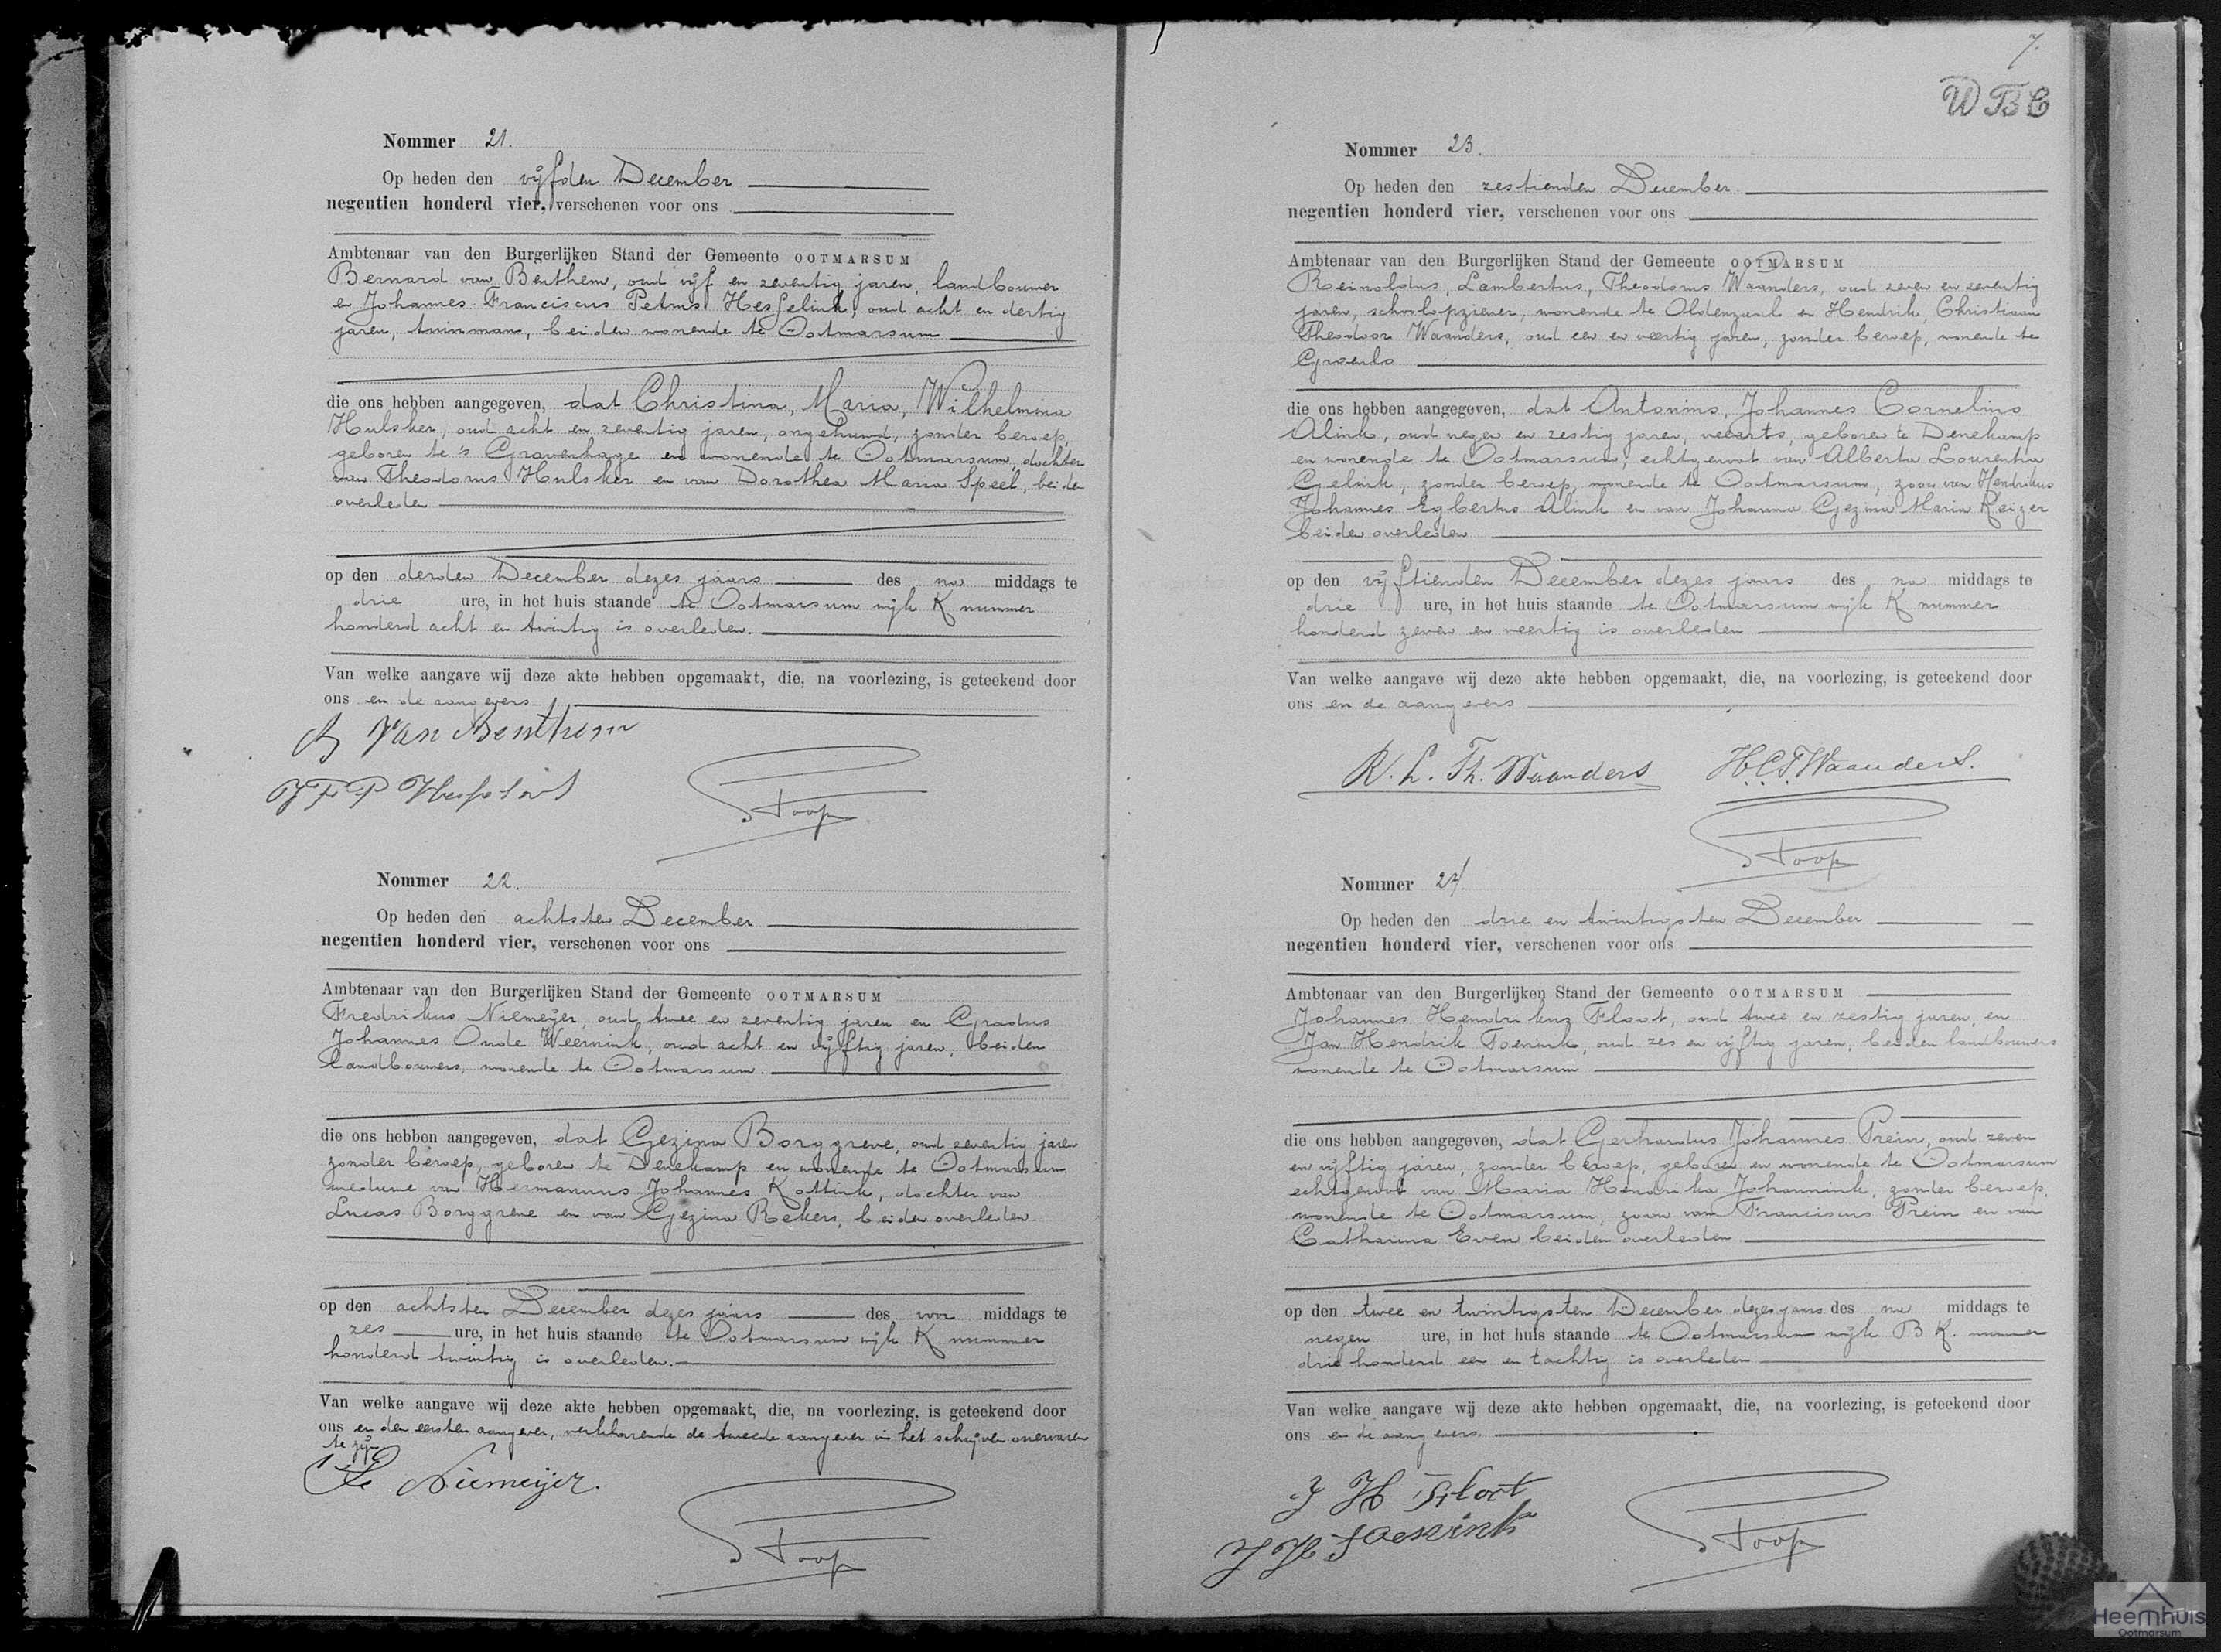 Nommer 21.
Op heden den vijfden December
negentien honderd vier, verschenen voor ons
Ambtenaar van den Burgerlijken Stand der Gemeente OOTMARSUM
Bernard van Benthem, oud vijf en zeventig jaren, landbouwer
en Johannes Franciscus Petrus Hesselink, oud acht en dertig
jaren, tuinman, beiden wonende te Ootmarsum
die ons hebben aangegeven, dat Christina, Maria, Wilhelmina
Hulsker, oud acht en zeventig jaren, ongehuwd, zonder beroep,
geboren te 's Gravenhage en wonende te Ootmarsum, dochter
van Theodorus Hulsker en van Dorothea Maria Speet, beide
overleden
op den derden December dezes jaars des na middags te
drie ure, in het huis staande te Ootmarsum wijk K nummer
honderd acht en twintig is overleden.
Van welke aangave wij deze akte hebben opgemaakt, die, na voorlezing, is geteekend door
ons en de aangevers
B van Benthem
J F P Hesselink
Stoop
Nommer 22.
Op heden den achtsten December
negentien honderd vier, verschenen voor ons
Ambtenaar van den Burgerlijken Stand der Gemeente OOTMARSUM
Fredrikus Niemeijer, oud twee en zeventig jaren en Gradus
Johannes Oude Weernink, oud acht en vijftig jaren, beiden
landbouwers, wonende te Ootmarsum.
die ons hebben aangegeven, dat Gezina Borggreve, oud zeventig jaren
zonder beroep, geboren te Denekamp en wonende te Ootmarsum
weduwe van Hermannus Johannes Kottink, dochter van
Lucas Borggreve en van Gezina Rekers, beiden overleden.
op den achtsten December dezes jaars des voor middags te
zes ure, in het huis staande te Ootmarsum wijk K nummer
honderd twintig is overleden.
Van welke aangave wij deze akte hebben opgemaakt, die, na voorlezing, is geteekend door
ons en den eersten aangever, verklarende de tweede aangever in het schrijven onervaren
te zijn
Niemeijer.
Stoop
7.
WBC
Nommer 23.
Op heden den zestienden December
negentien honderd vier, verschenen voor ons
Ambtenaar van den Burgerlijken Stand der Gemeente OOTMARSUM
Reinoldus, Lambertus, Theodorus Waanders, oud zeven en zeventig
jaren, schoolopziener, wonende te Oldenzaal en Hendrik, Christiaan
Theodoor Waanders, oud een en veertig jaren, zonder beroep, wonende te
Groenlo
die ons hebben aangegeven, dat Antonius, Johannes Cornelius
Alink, oud negen en zestig jaren, veearts, geboren te Denekamp
en wonende te Ootmarsum, echtgenoot van Alberta Lourentia
Gelink, zonder beroep, wonende te Ootmarsum, zoon van Hendrikus
Johannes Egbertus Alink en van Johanna Gezina Maria Keizer
beiden overleden
op den vijftienden December dezes jaars des na middags te
drie ure, in het huis staande te Ootmarsum wijk K nummer
honderd zeven en veertig is overleden
Van welke aangave wij deze akte hebben opgemaakt, die, na voorlezing, is geteekend door
ons en de aangevers
R. L. Th. Waanders H.C.T. Waanders.
Stoop
Nommer 24.
Op heden den drie en twintigsten December
negentien honderd vier, verschenen voor ons
Ambtenaar van den Burgerlijken Stand der Gemeente OOTMARSUM
Johannes Hendrikus Floot, oud twee en zestig jaren, en
Jan Hendrik Toenink, oud zes en vijftig jaren, beiden landbouwers
wonende te Ootmarsum
die ons hebben aangegeven, dat Gerhardus Johannes Prein, oud zeven
en vijftig jaren, zonder beroep, geboren en wonende te Ootmarsum
echtgenoot van Maria Hendrika Johannink, zonder beroep,
wonende te Ootmarsum, zoon van Franciscus Prein en van
Catharina Even beiden overleden
op den twee en twintigsten December dezes jaars des na middags te
negen ure, in het huis staande te Ootmarsum wijk B K. nummer
drie honderd een en tachtig is overleden
Van welke aangave wij deze akte hebben opgemaakt, die, na voorlezing, is geteekend door
ons en de aangevers.
J H Floot
J H
Stoop
Heemhuis
Ootmarsum